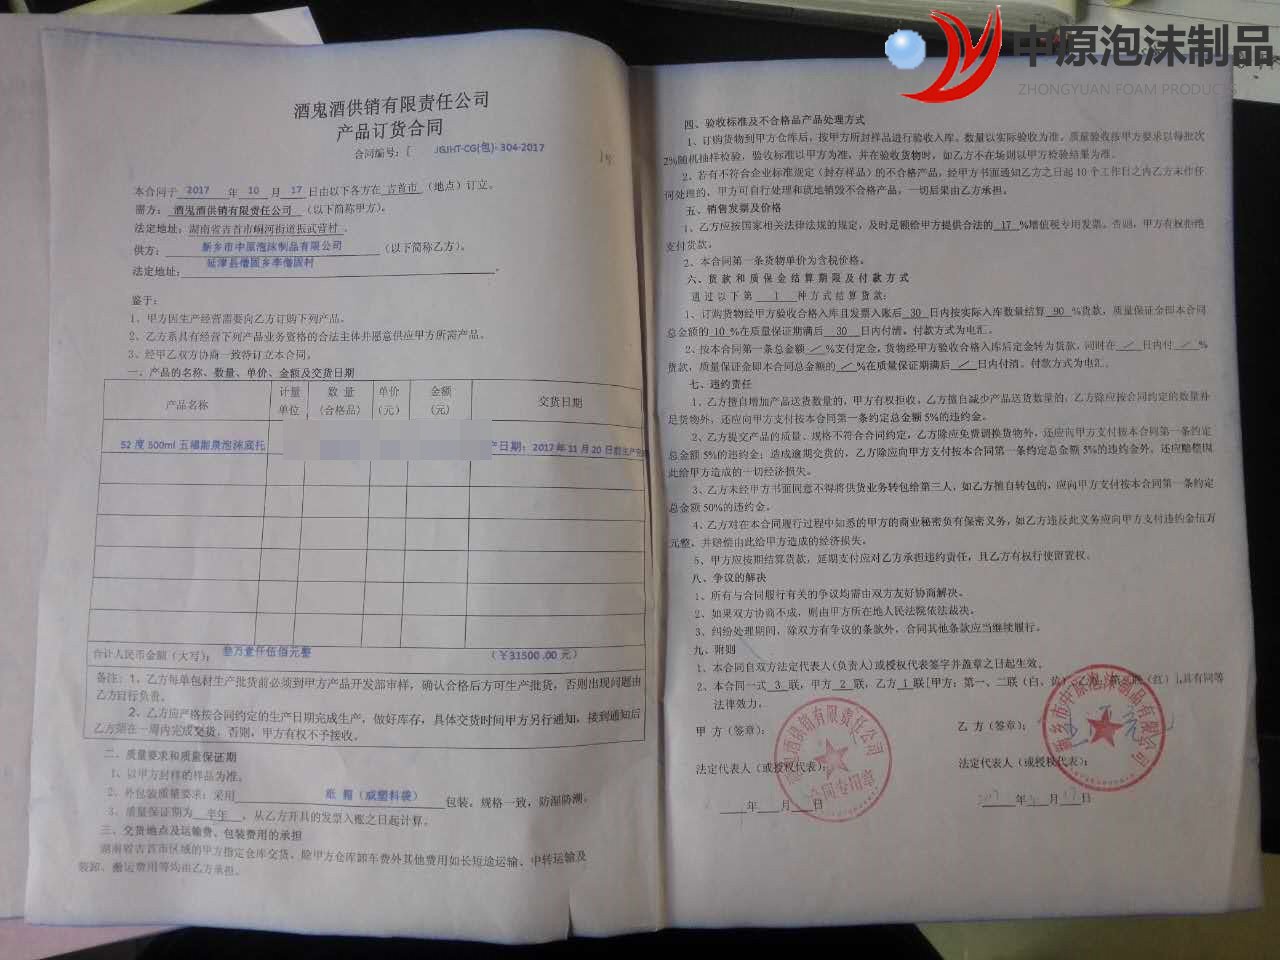 中原泡沫制品
ZHONGYUAN FOAM PRODUCTS
酒鬼酒供销有限责任公司
产品订货合同
合同编号：[ JGJHT-CG(包)- 304-2017
本合同于 2017 年 10 月 17 日由以下各方在 吉首市（地点）订立。
需方：酒鬼酒供销有限责任公司（以下简称甲方）。
法定地址：湖南省吉首市峒河街道振武营村。
供方：新乡市中原泡沫制品有限公司（以下简称乙方）。
法定地址：延津县僧固乡李僧固村。
鉴于：
1、甲方因生产经营需要向乙方订购下列产品。
2、乙方系具有经营下列产品业务资格的合法主体并愿意供应甲方所需产品。
3、经甲乙双方协商一致特订立本合同。
一、产品的名称、数量、单价、金额及交货日期
产品名称 计量单位 数 量（合格品） 单价（元） 金额（元） 交货日期
52 度 500ml 五福湘泉泡沫底托 产日期：2017 年 11 月 20 日前生产完
合计人民币金额（大写）：叁万壹仟伍佰元整 （￥31500.00 元）
备注：1、乙方每单包材生产批货前必须到甲方产品开发部审样，确认合格后方可生产批货，否则出现问题由
乙方自行负责。
2、乙方应严格按合同约定的生产日期完成生产，做好库存，具体交货时间甲方另行通知，接到通知后
乙方须在一周内完成交货，否则，甲方有权不予接收。
二、质量要求和质量保证期
1、以甲方封样的样品为准。
2、外包装质量要求：采用 纸 箱（或塑料袋） 包装，规格一致，防湿防潮。
3、质量保证期为 半年 ，从乙方开具的发票入账之日起计算。
三、交货地点及运输费、包装费用的承担
湖南省吉首市区域的甲方指定仓库交货，除甲方仓库卸车费外其他费用如长短途运输、中转运输及
装卸、搬运费用等均由乙方承担。
四、验收标准及不合格品产品处理方式
1、订购货物到甲方仓库后，按甲方所封样品进行验收入库。数量以实际验收为准，质量验收按甲方要求以每批次
2%随机抽样检验，验收标准以甲方为准，并在验收货物时，如乙方不在场则以甲方检验结果为准。
2、若有不符合企业标准规定（封存样品）的不合格产品，经甲方书面通知乙方之日起 10 个工作日之内乙方未作任
何处理的，甲方可自行处理和就地销毁不合格产品，一切后果由乙方承担。
五、销售发票及价格
1、乙方应按国家相关法律法规的规定，及时足额给甲方提供合法的 17 %增值税专用发票。否则，甲方有权拒绝
支付货款。
2、本合同第一条货物单价为含税价格。
六、货款和质保金结算期限及付款方式
通过以下第 1 种方式结算货款：
1、订购货物经甲方验收合格入库且发票入账后 30 日内按实际入库数量结算 90 %货款，质量保证金即本合同
总金额的 10 %在质量保证期满后 30 日内付清。付款方式为电汇。
2、按本合同第一条总金额 / %支付定金，货物经甲方验收合格入库后定金转为货款，同时在 / 日内付 / %
货款，质量保证金即本合同总金额的 / %在质量保证期满后 / 日内付清。付款方式为电汇。
七、违约责任
1、乙方擅自增加产品送货数量的，甲方有权拒收。乙方擅自减少产品送货数量的，乙方除应按合同约定的数量补
足货物外，还应向甲方支付按本合同第一条约定总金额 5%的违约金。
2、乙方提交产品的质量、规格不符合合同约定，乙方除应免费调换货物外，还应向甲方支付按本合同第一条约定
总金额 5%的违约金；造成逾期交货的，乙方除应向甲方支付按本合同第一条约定总金额 5%的违约金外，还应赔偿因
此给甲方造成的一切经济损失。
3、乙方未经甲方书面同意不得将供货业务转包给第三人，如乙方擅自转包的，应向甲方支付按本合同第一条约定
总金额 50%的违约金。
4、乙方对在本合同履行过程中知悉的甲方的商业秘密负有保密义务，如乙方违反此义务应向甲方支付违约金伍万
元整，并赔偿由此给甲方造成的经济损失。
5、甲方应按期结算货款，延期支付应对乙方承担违约责任，且乙方有权行使留置权。
八、争议的解决
1、所有与合同履行有关的争议均需由双方友好协商解决。
2、如果双方协商不成，则由甲方所在地人民法院依法裁决。
3、纠纷处理期间，除双方有争议的条款外，合同其他条款应当继续履行。
九、附则
1、本合同自双方法定代表人(负责人)或授权代表签字并盖章之日起生效。
2、本合同一式 3 联，甲方 2 联，乙方 1 联[甲方：第一、二联（白、 联（红）],具有同等
法律效力。
甲 方（签章）： 乙 方（签章）：
法定代表人（或授权代表）： 法定代表人（或授权代表）：
年 月 日 2017 年 月 17 日
酒鬼酒供销有限责任公司
合同专用章
新乡市中原泡沫制品有限公司